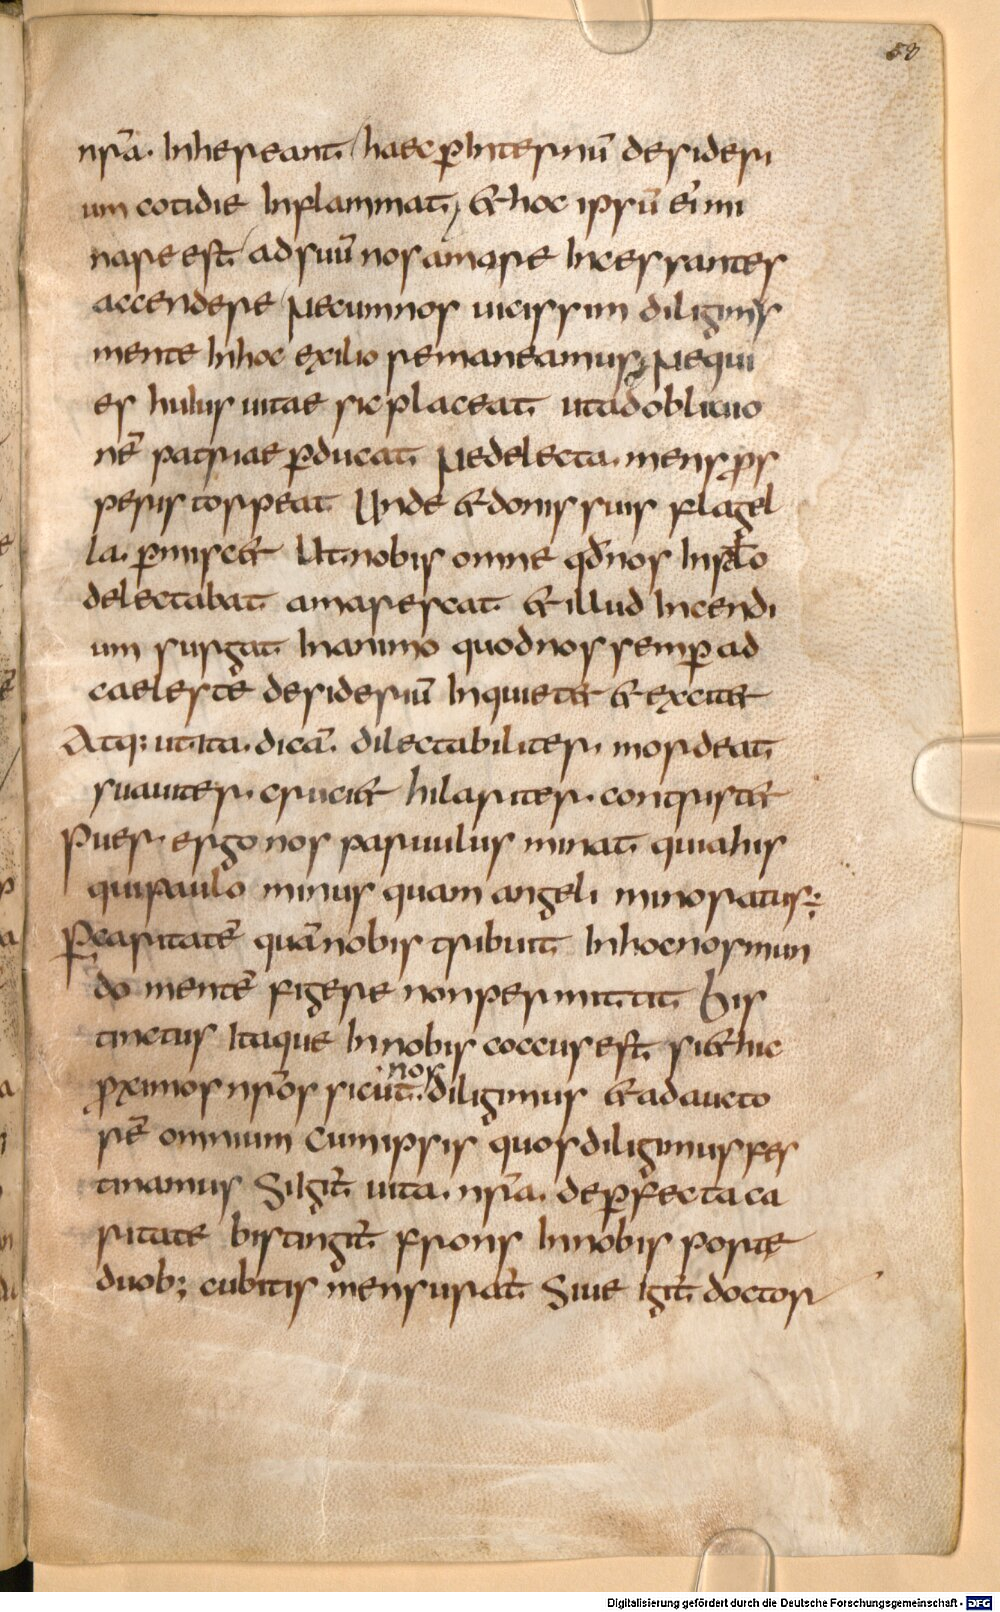 58
nr̄a. Inhereant haec ꝑ Internū desideri
um cotidie Inflammat, & hoc ipsū ei mi
nare est ad suū nos amare Incessanter
accendere Ne cum nos uicissim diligimus
mente In hoc exilio remaneamus, Ne qui
es huius uitae sic placeat ut ad obliuio
nē patriae ꝑducat. Ne delecta. mens ꝓs
peris torpeat Unde & donis suis flagel
la. ꝑmisc& Ut nobis omne qđ nos In sclo
delectabat amarescat & illud Incendi
um surgat In animo quod nos semꝑ ad
caelestē desideriū Inquiet& & excit&
Atq; ut ita. dicā. dilectabiliter. mordeat
suauiter. cruci& hilariter. contrist&
Puer. ergo nos paruulus minat quia his
qui paulo minus quam angeli minoratus;
Ꝑ caritatē quā nobis tribuit In hoc nos mun
do mentē figere non permittit Bis
tinctus Itaque In nobis coccus est si & hic
ꝓximos nr̄os sicut nos diligimus & ad aucto
rē omnium cum ipsis quos diligimus fes
tinamus Si igit̄ uita. nr̄a. de ꝑfecta ca
ritate bis tingit̄ frons In nobis porte
duob; cubitis mensurat̄ Siue igit̄ doctor
Digitalisierung gefördert durch die Deutsche Forschungsgemeinschaft - DFG